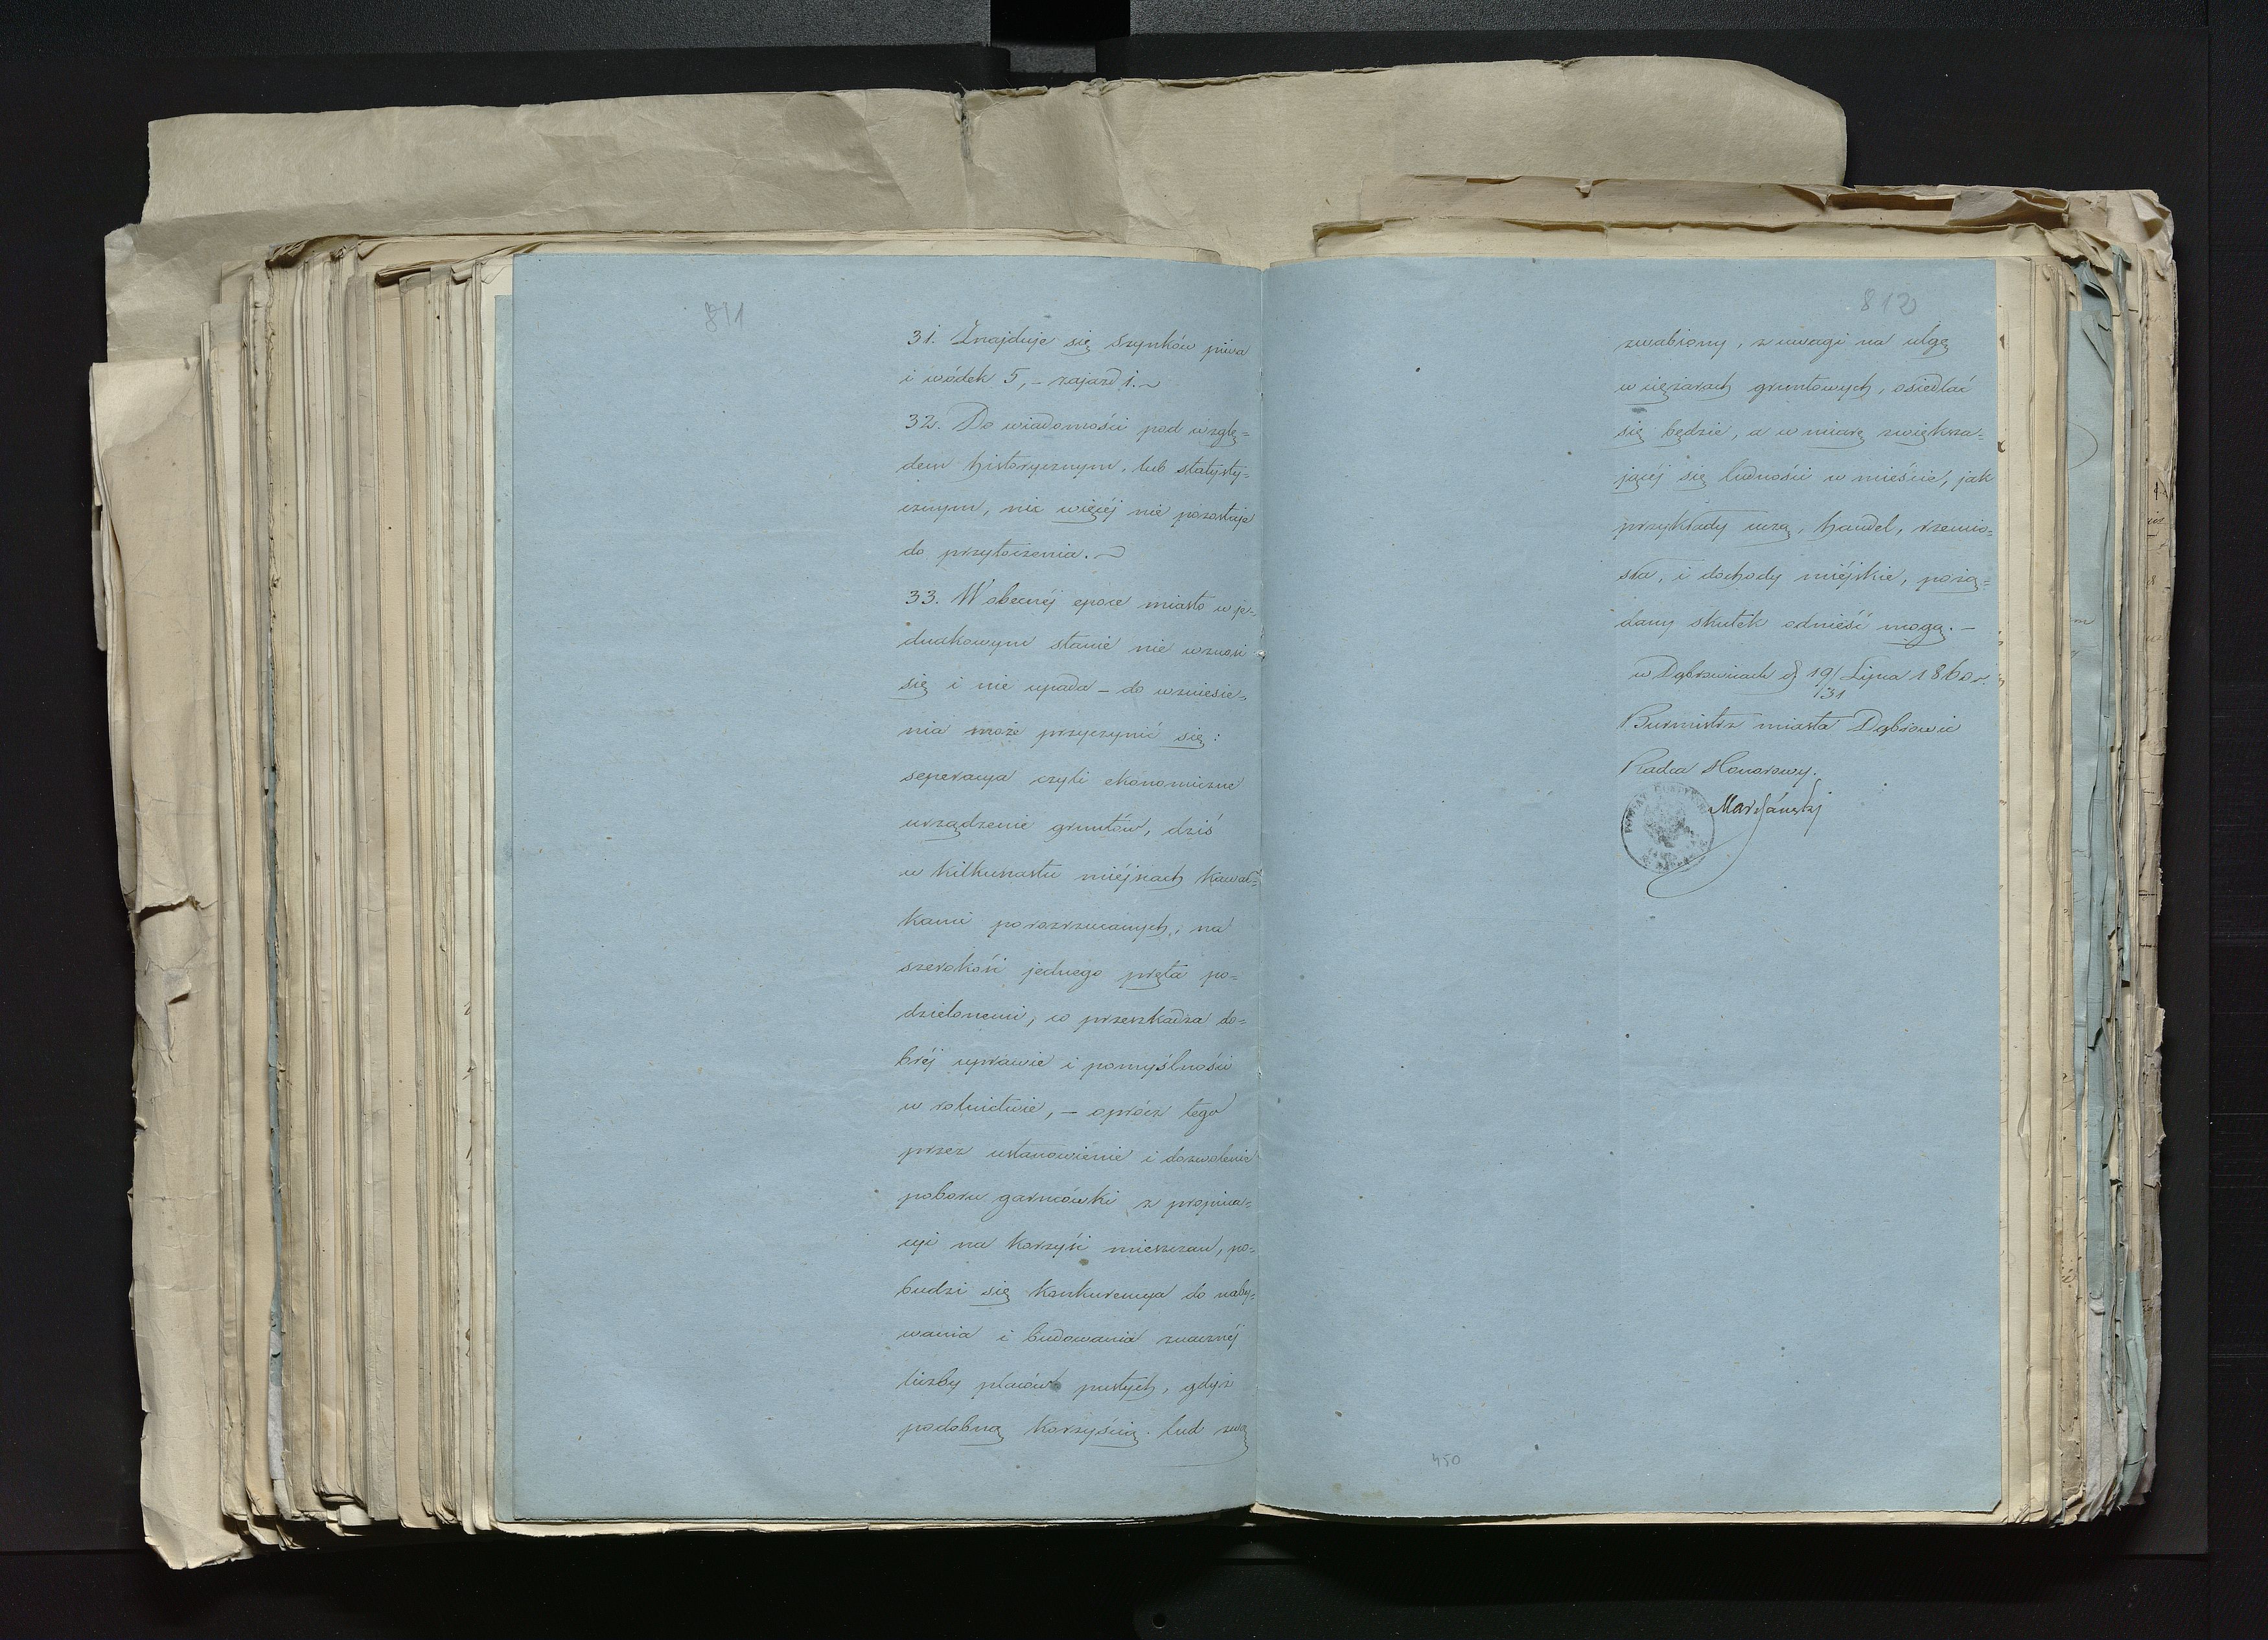 811
31. Znajduje się szynków piwa
i wódek 5, – zajazd 1.
32. Do wiadomości pod wzglę=
dem historycznym, lub statysty=
cznym, nic więcéj nie pozostaje
do przytoczenia.
33. W obecnéj epoce miasto w je=
dnakowym stanie nie wznosi
się i nie upada – do wzniesie=
nia może przyczynić się:
seperacya czyli ekonomiczne
urządzenie gruntów, dziś
w kilkunastu miéjscach kawał=
kami porozrzucanych, na
szerokość jednego pręta po=
dzielonemi, co przeszkadza do=
bréj uprawie i pomyślności
w rolnictwie, – oprócz tego
przez ustanowienie i dozwolenie
poboru garncówki z propina=
cyi na korzyść mieszczan, po=
budzi się konkurencya do naby=
wania i budowania znacznéj
liczby placów pustych, gdyż
podobną korzyścią lud
812
zwabiony, z uwagi na ulgę
w ciężarach gruntowych, osiedlać
się będzie, a w miarę zwiększa=
jącéj się ludności w mieście, jak
przykłady uczą, handel, rzemio=
sła, i dochody miéjskie, pożą=
dany skutek odnieść mogą. –
w Dąbrowicach d 19/31 Lipca 1860 r.
Burmistrz miasta Dąbrowic
Radca Honorowy.
450